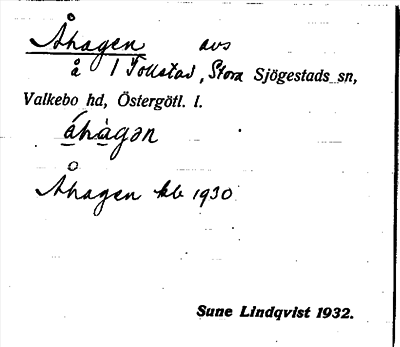 Åhagen avs
å 1 Tollstad, Stora Sjögestads sn,
Valkebo hd, Östergötl. l.
áhàgən
Åhagen kb 1930
Sune Lindqvist 1932.